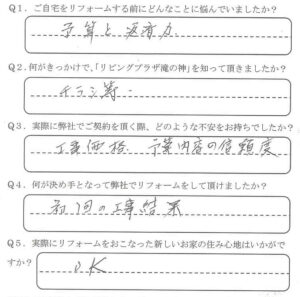 Q1．ご自宅をリフォームする前にどんなことに悩んでいましたか？
予算と返済力
Q2．何がきっかけで、「リビングプラザ滝の神」を知って頂きましたか？
チラシ等．
Q3．実際に弊社でご契約を頂く際、どのような不安をお持ちでしたか？
工事価格 予算内容の信頼度
Q4．何が決め手となって弊社でリフォームをして頂けましたか？
初回の工事結果
Q5．実際にリフォームをおこなった新しいお家の住み心地はいかがで
すか？
OK